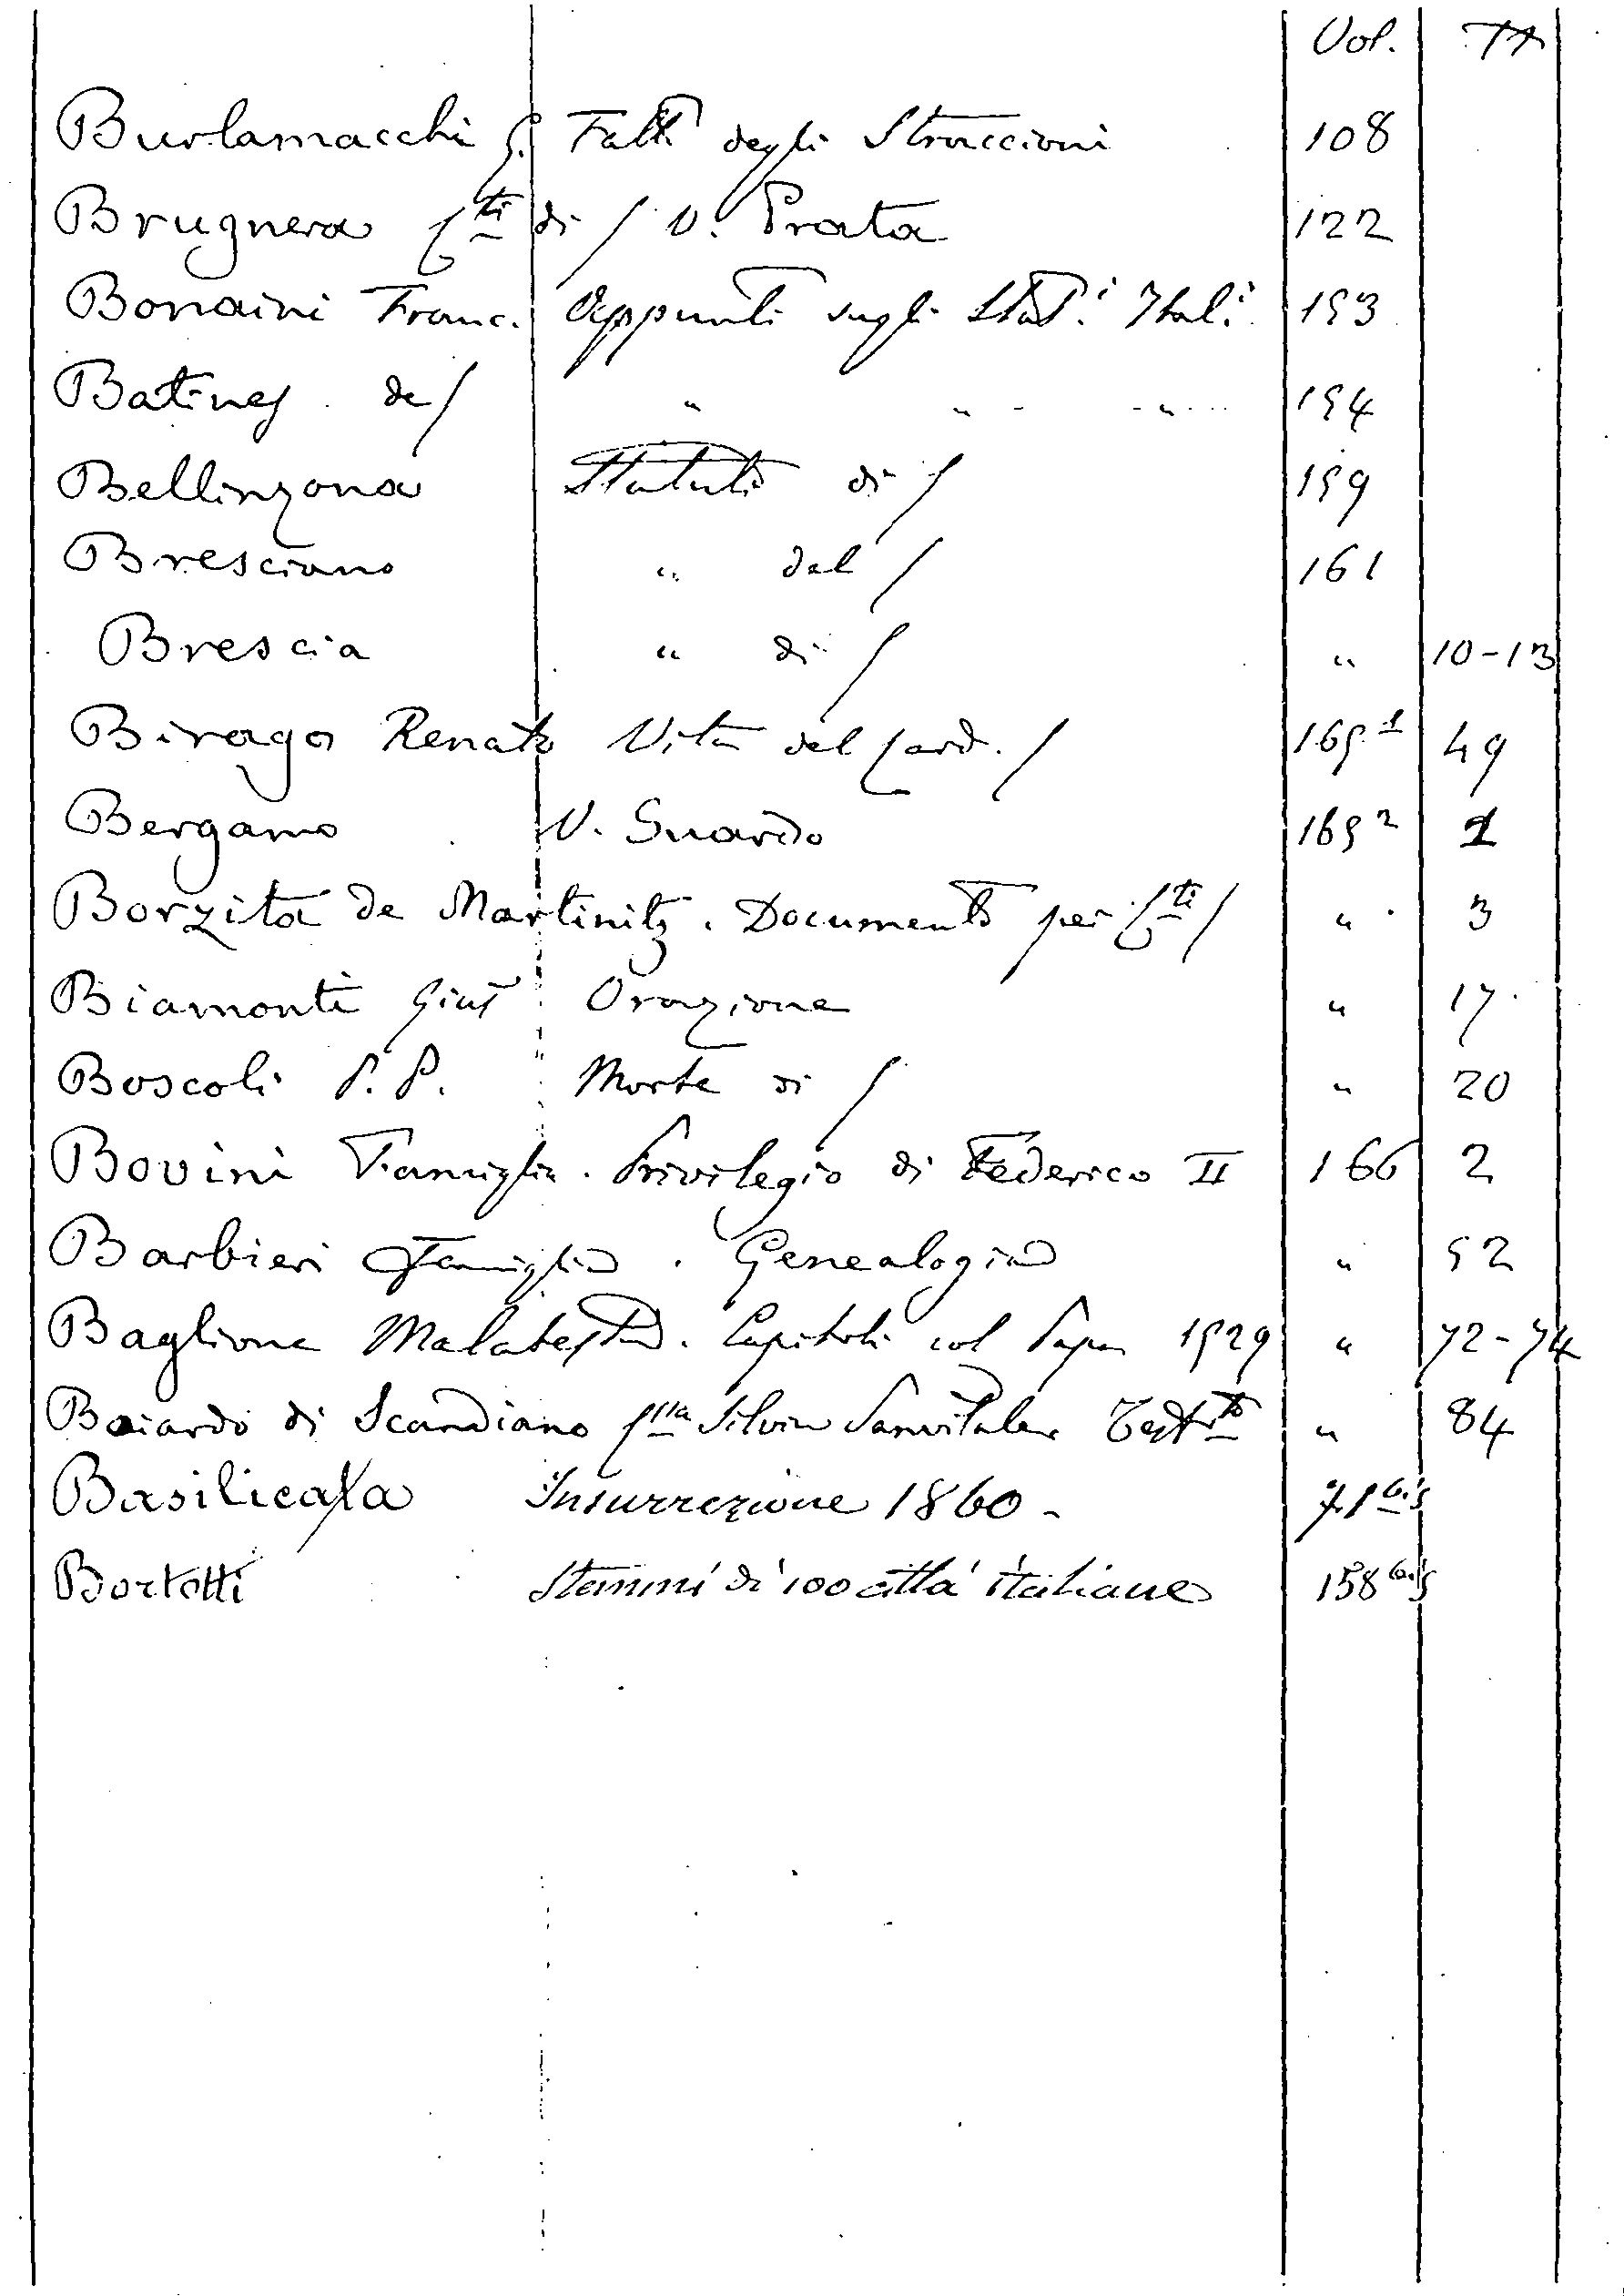 Vol.
Burlamacchi G. Fatti degli Straccioni 108
Brugnera Cti di / V. Prata 122
Bonaini Franc. Appunti sugli Stat.i Ital.i 153
Batines de / " " " 154
Bellinzona Statuti di / 159
Bresciano " del / 161
Brescia " di / " 10-13
Birago Renato Vita del Card. / 165.1 49
Bergamo V. Suardo 165 2 1
Borzita de Martinitz. Documenti pei Cti / " 3
Biamonti Gius Orazione " 17
Boscoli P. P. Morte di / " 20
Bovini Famiglia. Privilegio di Federico II 166 2
Barbieri Famiglia. Genealogia " 52
Baglione Malatesta. Capitoli col Papa 1529 " 72-74
Boiardo di Scandiano Silvia Sanvitale Testto " 84
Basilicata Insurrezione 1860 - 71 bis
Bortotti Stemmi di 100 città italiane 158 bis